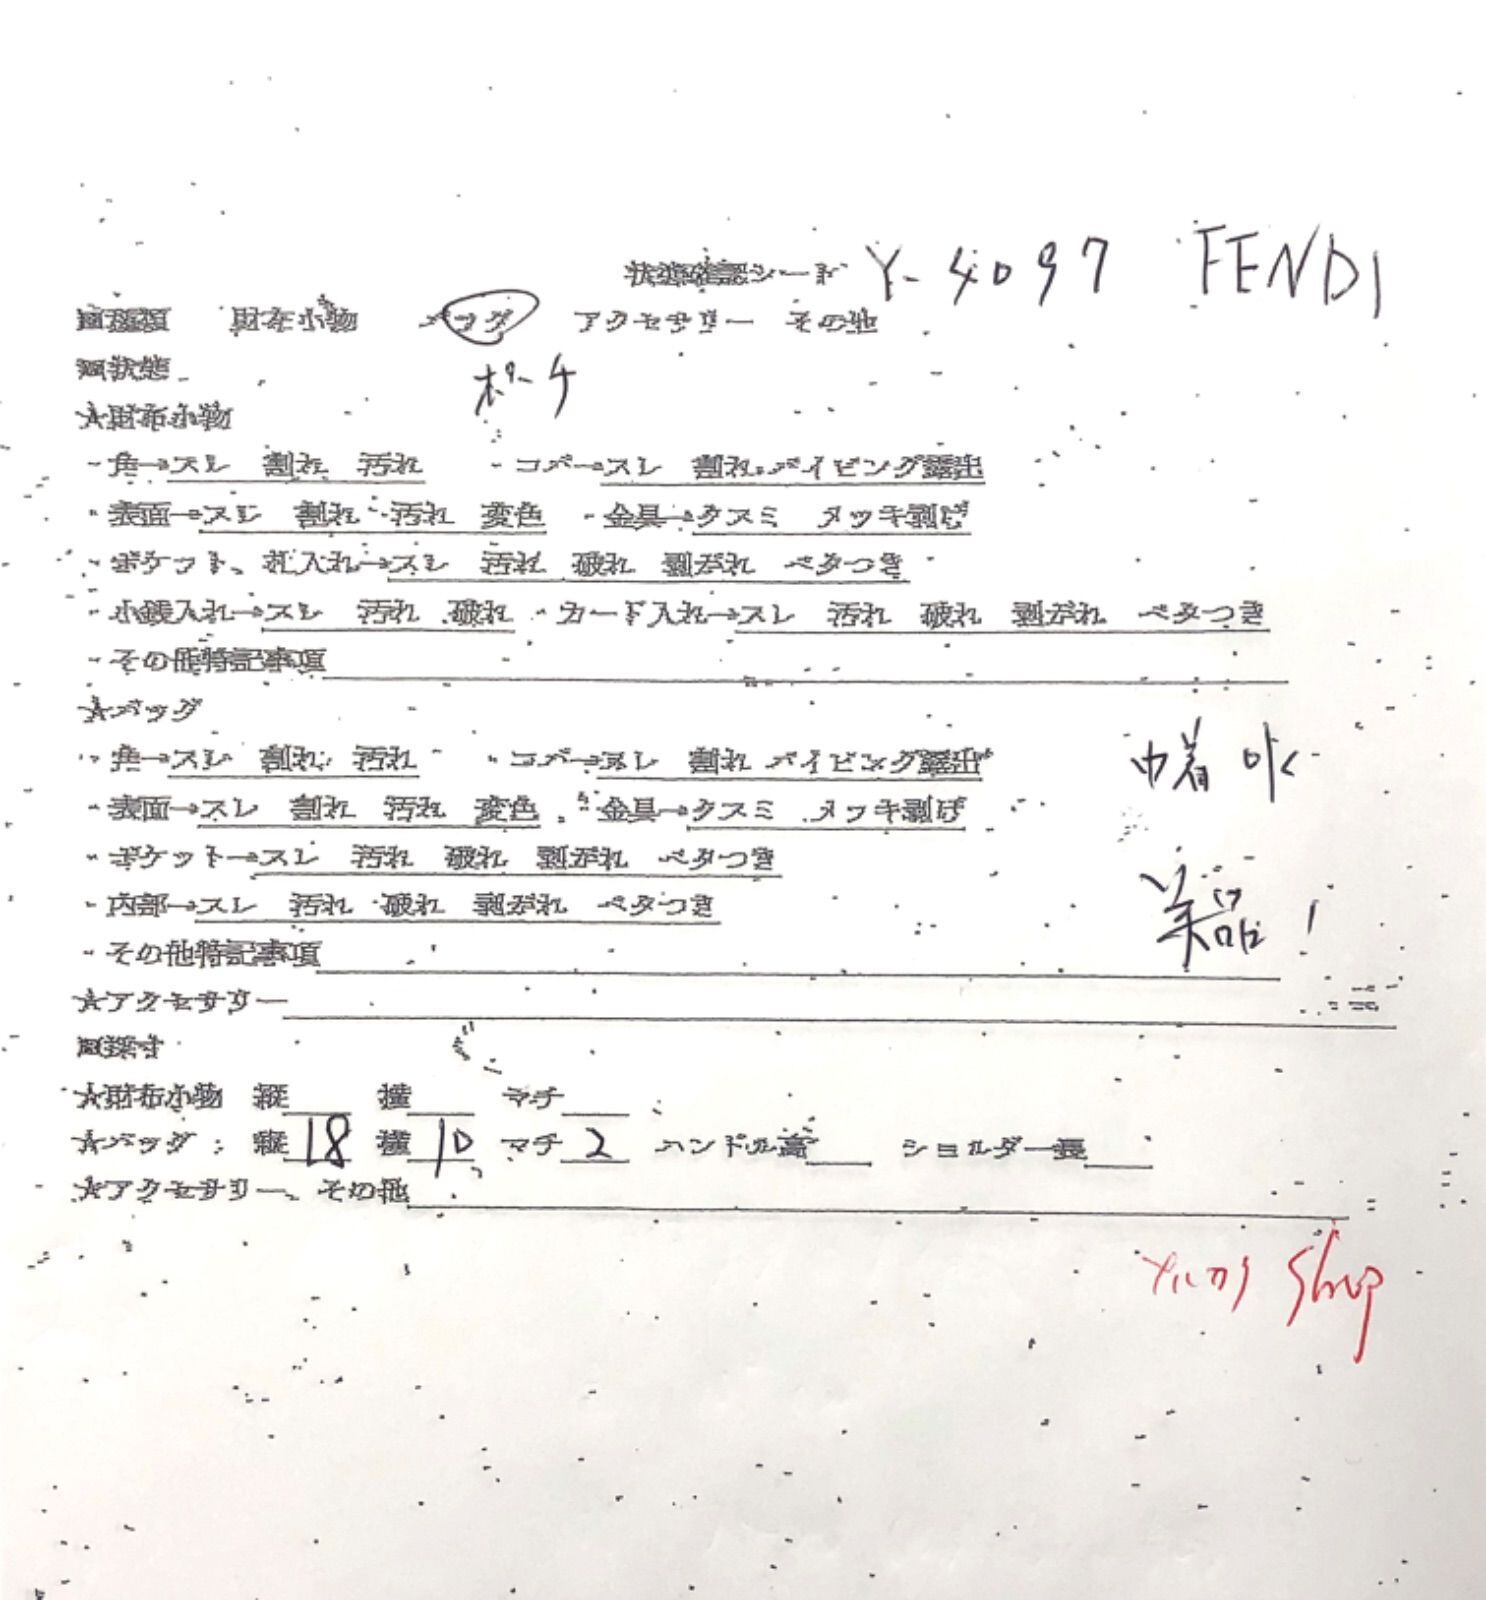 状態確認シート Y-4097 FENDI
■種類 財布小物 バッグ アクセサリー その他
■状態 ポーチ
★財布小物
・角→スレ 割れ 汚れ ・コバ→スレ 割れ パイピング露出
・表面→スレ 割れ 汚れ 変色 ・金具→クスミ メッキ剥げ
・ポケット、札入れ→スレ 汚れ 破れ 剥がれ ベタつき
・小銭入れ→スレ 汚れ 破れ ・カード入れ→スレ 汚れ 破れ 剥がれ ベタつき
・その他特記事項
★バッグ
・角→スレ 割れ 汚れ ・コバ→スレ 割れ パイピング露出 巾着 OK
・表面→スレ 割れ 汚れ 変色 ・金具→クスミ メッキ剥げ
・ポケット→スレ 汚れ 破れ 剥がれ ベタつき
・内部→スレ 汚れ 破れ 剥がれ ベタつき 美品!
・その他特記事項
★アクセサリー
■採寸
★財布小物 縦 横 マチ
★バッグ: 縦18 横10 マチ2 ハンドル高 ショルダー長
★アクセサリー、その他
メルカリ Shop